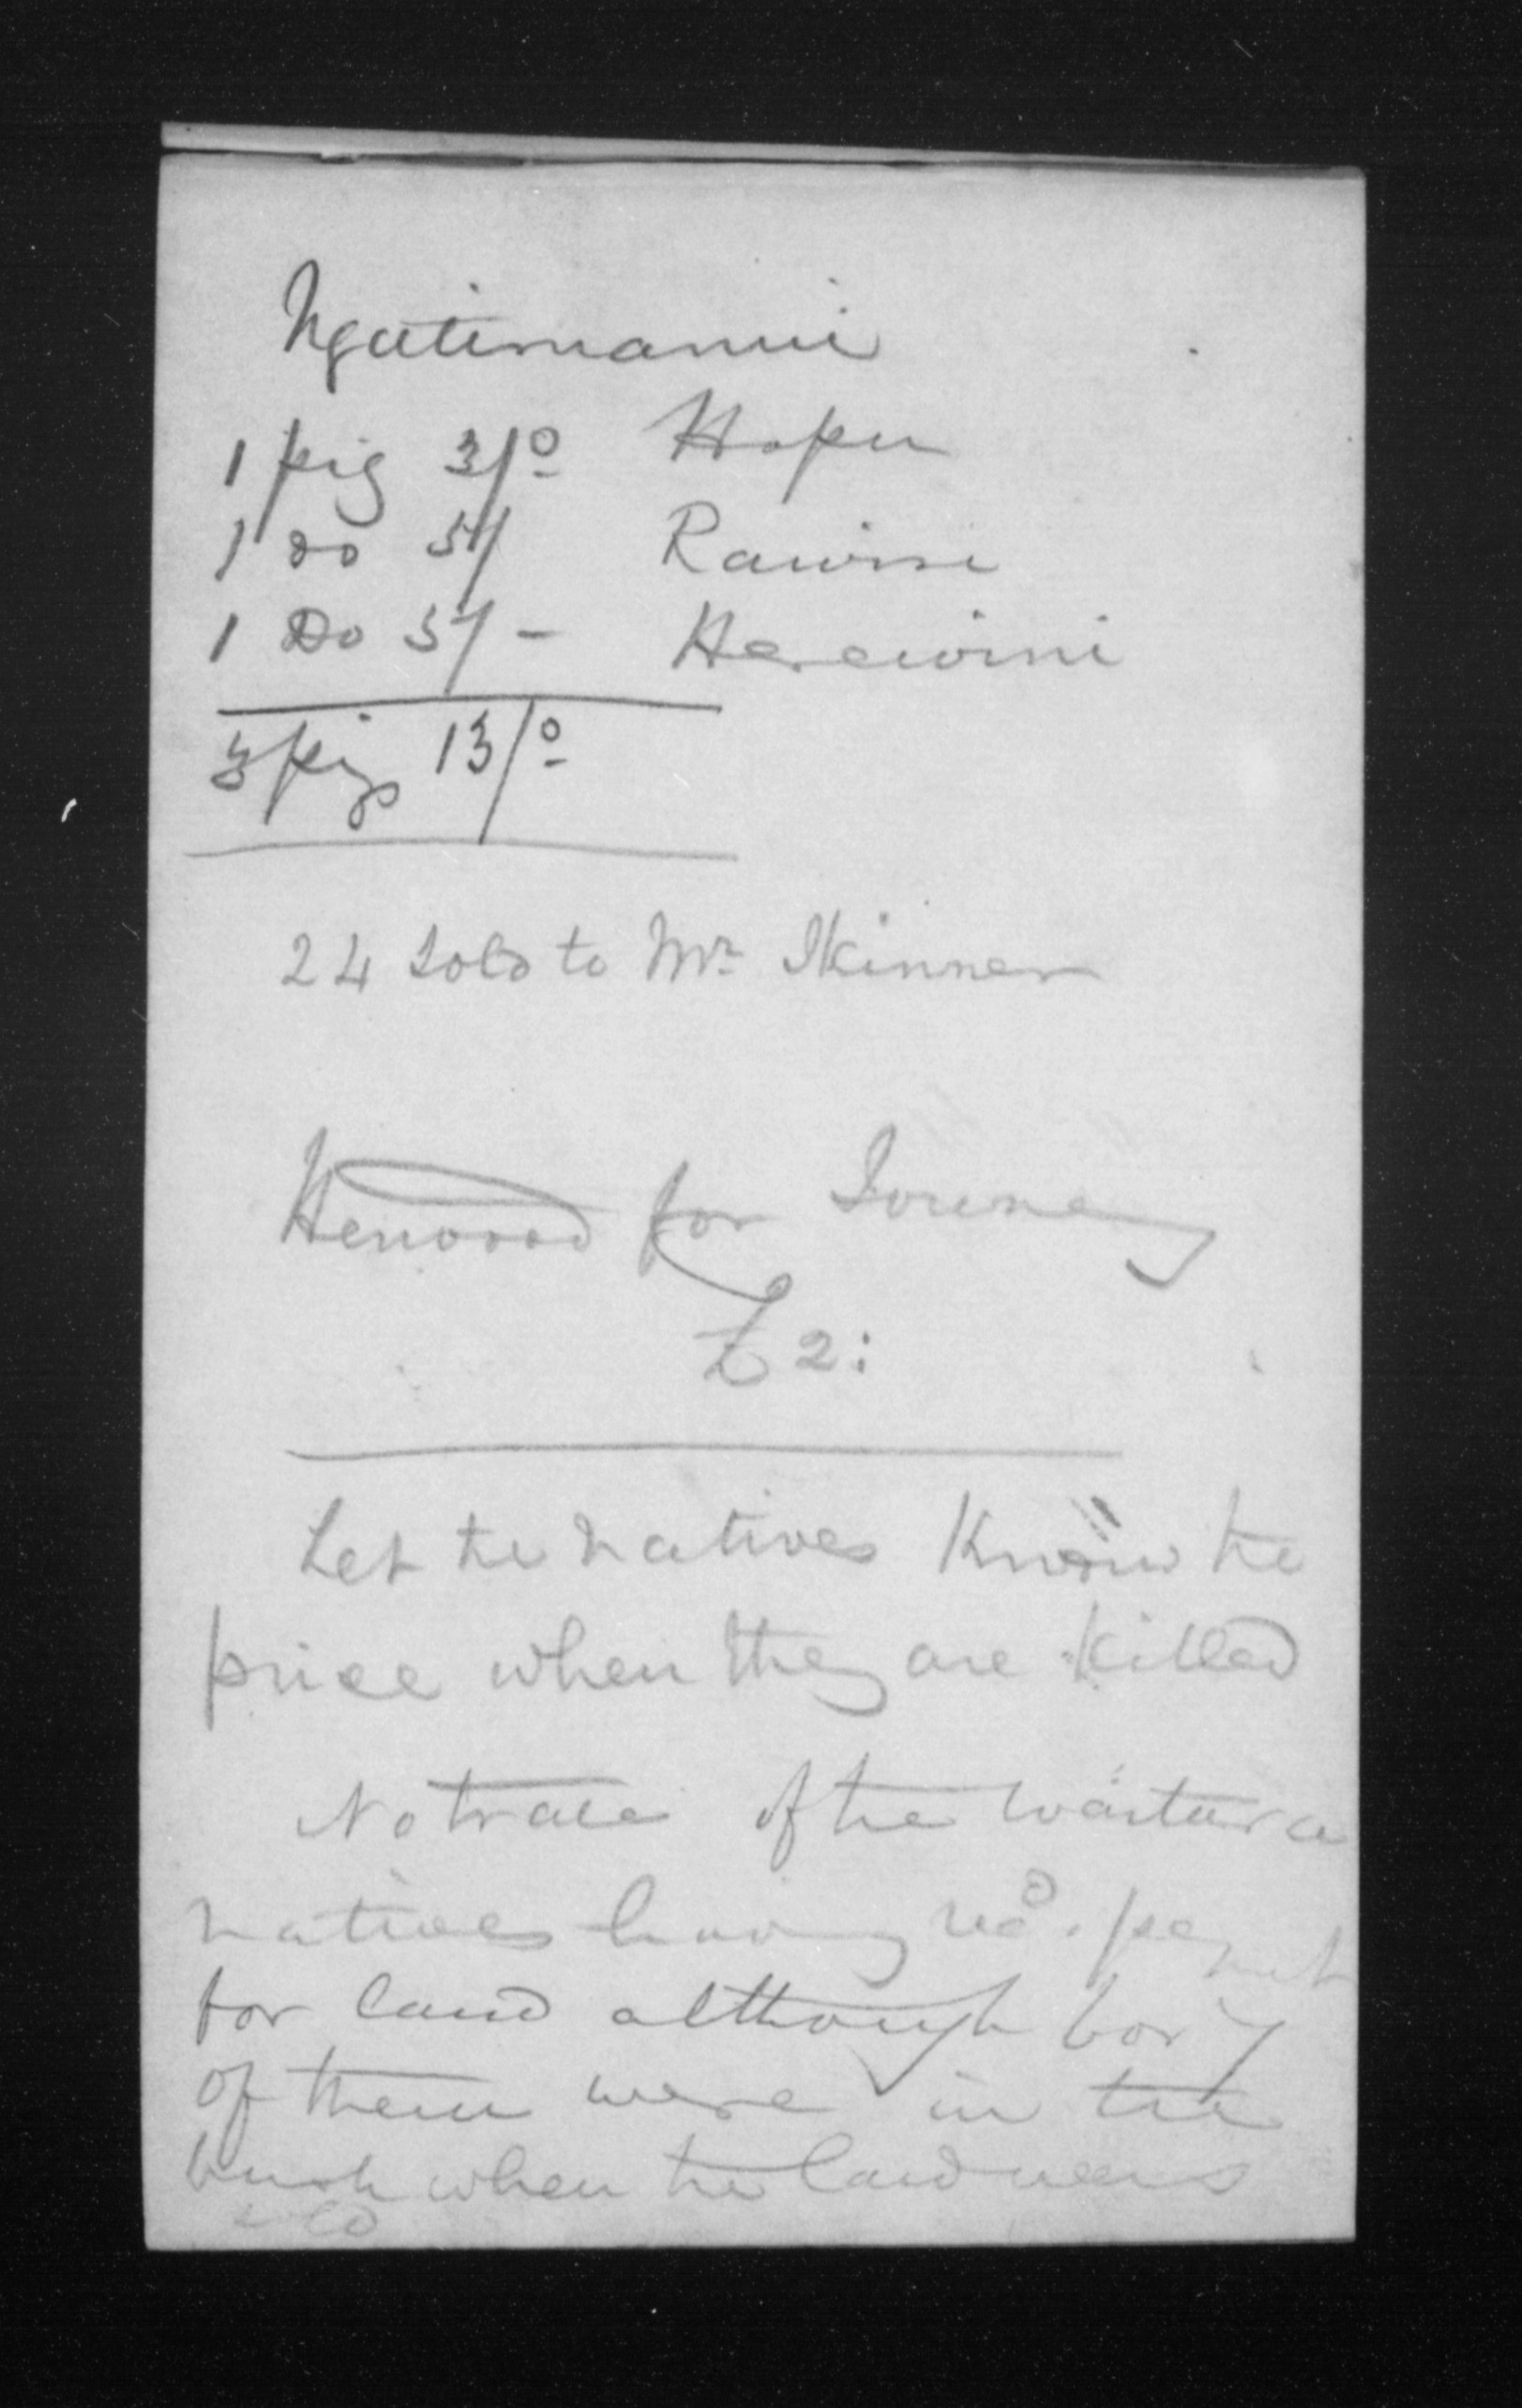 Ngatimaniii
1 pig 3/0 Hopu
1 do 5/ Rawiri
1 Do 5/- Herewini
3 pigs 13/0
24 sold to Mr Skinner
Henwood for
£2:
Let the natives Know the
price when they are killed
No trace of the Waitara
natives having recd. paymt
for land although
of them were in the
bush when the land was
sold